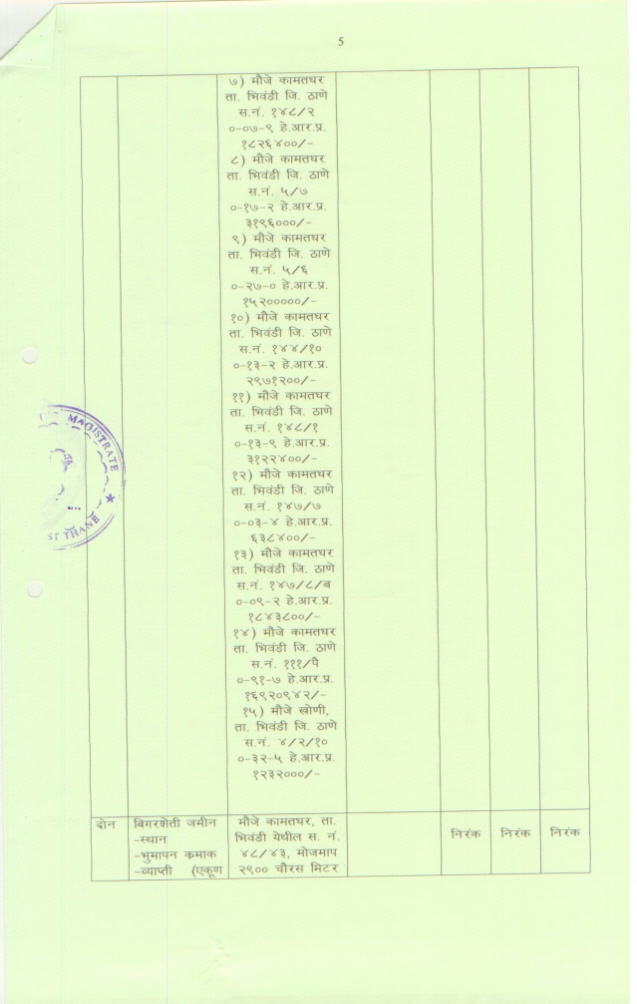 5
७) मौजे कामतघर
ता. भिवंडी जि. ठाणे
स.नं. १४८/२
०-०७-९ हे.आर.प्र.
१८२६४००/-
८) मौजे कामतघर
ता. भिवंडी जि. ठाणे
स.नं. ५/७
०-१७-२ हे.आर.प्र.
३१९६०००/-
९) मौजे कामतघर
ता. भिवंडी जि. ठाणे
स.नं. ५/६
०-२७-० हे.आर.प्र.
१५२०००००/-
१०) मौजे कामतघर
ता. भिवंडी जि. ठाणे
स.नं. १४४/१०
०-१३-२ हे.आर.प्र.
२९७१२००/-
११) मौजे कामतघर
ता. भिवंडी जि. ठाणे
स.नं. १४८/१
०-१३-९ हे.आर.प्र.
३१२२४००/-
१२) मौजे कामतघर
ता. भिवंडी जि. ठाणे
स.नं. १४७/७
०-०३-४ हे.आर.प्र.
६३८४००/-
१३) मौजे कामतघर
ता. भिवंडी जि. ठाणे
स.नं. १४७/८/ब
०-०९-२ हे.आर.प्र.
१८४३८००/-
१४) मौजे कामतघर
ता. भिवंडी जि. ठाणे
स.नं. १११/पै
०-९१-७ हे.आर.प्र.
१६९२०९४२/-
१५) मौजे खोणी,
ता. भिवंडी जि. ठाणे
स.नं. ४/२/१०
०-३२-५ हे.आर.प्र.
१२३२०००/-
दोन बिगरशेती जमीन मौजे कामतघर, ता. निरंक निरंक निरंक
-स्थान भिवंडी येथील स. नं.
-भुमापन कमाक ४८/४३, मोजमाप
-व्याप्ती (एकूण २९०० चौरस मिटर
MAGISTRATE
THANE